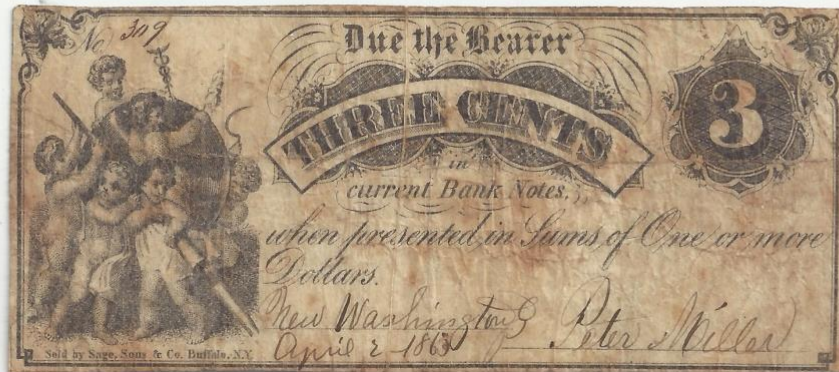 No 309
Due the Bearer
THREE CENTS
3
in
current Bank Notes,
when presented in Sums of One or more
Dollars.
New Washington
April 2 1863
Peter Miller
Sold by Sage, Sons & Co. Buffalo, N.Y.